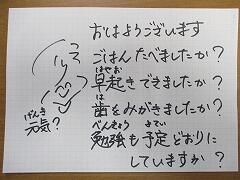 おはようございます
ごはんたべましたか？
はやお
早起きできましたか？
は
歯をみがきましたか？
べんきょう よてい
勉強も予定どおりに
していますか？
げんき
元気？